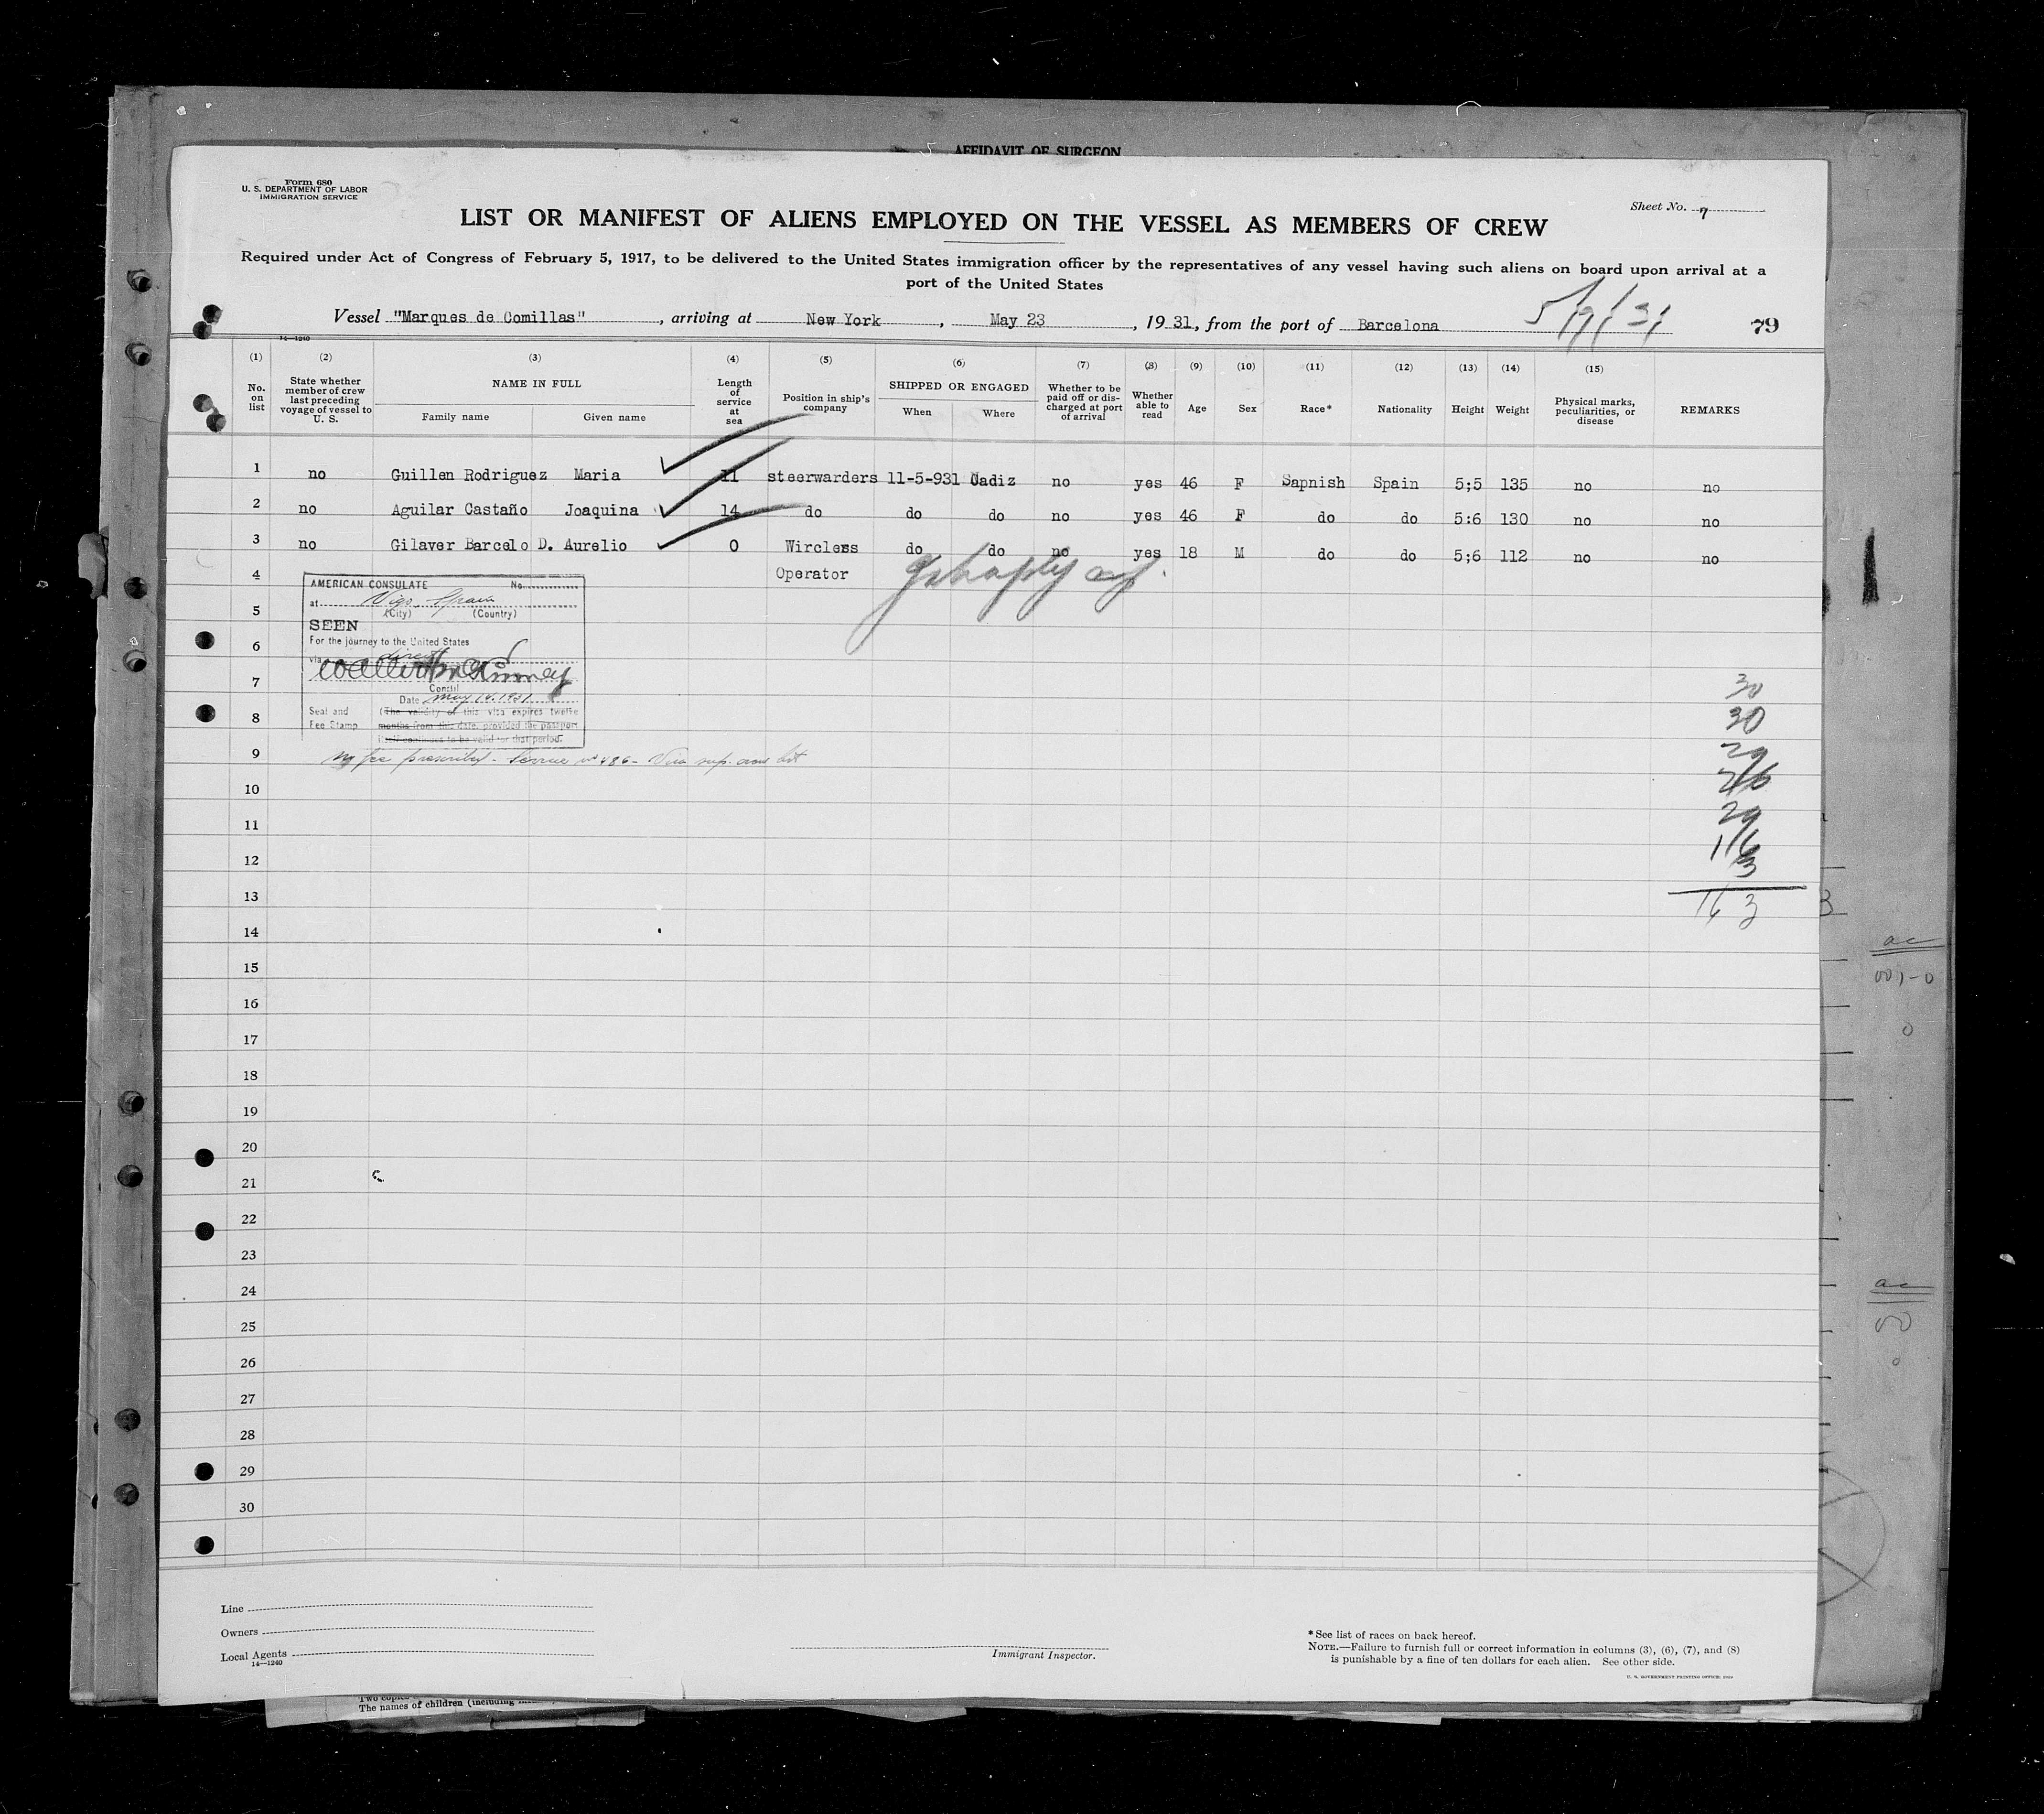 AFFIDAVIT OF SURGEON
Form 680
U. S. DEPARTMENT OF LABOR
IMMIGRATION SERVICE
Sheet No. 7
LIST OR MANIFEST OF ALIENS EMPLOYED ON THE VESSEL AS MEMBERS OF CREW
Required under Act of Congress of February 5, 1917, to be delivered to the United States immigration officer by the representatives of any vessel having such aliens on board upon arrival at a
port of the United States
Vessel "Marques de Comillas", arriving at New York, May 23, 1931, from the port of Barcelona
79
14—1240
(1) (2) (3) (4) (5) (6) (7) (8) (9) (10) (11) (12) (13) (14) (15)
No. on list
State whether member of crew last preceding voyage of vessel to U. S.
NAME IN FULL
Family name
Given name
Length of service at sea
Position in ship's company
SHIPPED OR ENGAGED
When
Where
Whether to be paid off or discharged at port of arrival
Whether able to read
Age
Sex
Race*
Nationality
Height
Weight
Physical marks, peculiarities, or disease
REMARKS
1 no Guillen Rodriguez Maria 11 steerwarders 11-5-931 Cadiz no yes 46 F Sapnish Spain 5;5 135 no no
2 no Aguilar Castaño Joaquina 14 do do do no yes 46 F do do 5:6 130 no no
3 no Gilaver Barcelo D. Aurelio 0 Wireless do do no yes 18 M do do 5;6 112 no no
4 Operator
AMERICAN CONSULATE No.
at Vigo, Spain
(City) (Country)
SEEN
For the journey to the United States
via direct
Consul
Date May 14, 1931
Seal and (The validity of this visa expires twelve
Fee Stamp months from this date, provided the passport
itself continues to be valid for that period.
No fee prescribed
5
6
7
8
9
10
11
12
13
14
15
16
17
18
19
20
21
22
23
24
25
26
27
28
29
30
30
30
29
26
29
16
3
163
Line
Owners
Local Agents
14—1240
Immigrant Inspector.
*See list of races on back hereof.
NOTE.—Failure to furnish full or correct information in columns (3), (6), (7), and (8)
is punishable by a fine of ten dollars for each alien. See other side.
The names of children (including